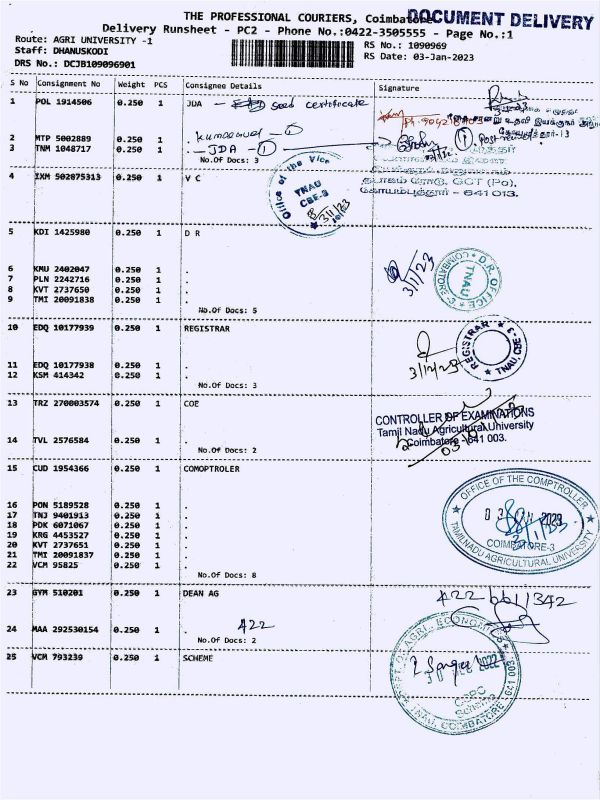 THE PROFESSIONAL COURIERS, Coimbatore
DOCUMENT DELIVERY
Delivery Runsheet - PC2 - Phone No.:0422-3505555 - Page No.:1
Route: AGRI UNIVERSITY -1
RS No.: 1090969
Staff: DHANUSKODI
RS Date: 03-Jan-2023
DRS No.: DCJB109096901
S No Consignment No Weight PCS Consignee Details Signature
1 POL 1914506 0.250 1 JDA - seed certificate
2 MTP 5002889 0.250 1 . kumaravel - 1
3 TNM 1048717 0.250 1 . - JDA - 1
No.Of Docs: 3
கோயமுத்தூர் - 641 013.
4 IXM 502875313 0.250 1 V C
Office of the Vice
TNAU
CBE-3
3/1/23
5 KDI 1425980 0.250 1 D R
6 KMU 2402047 0.250 1 .
7 PLN 2242716 0.250 1 .
8 KVT 2737650 0.250 1 .
9 TMI 20091838 0.250 1 .
No.Of Docs: 5
3/1/23
D.R. OFFICE
TNAU
COIMBATORE-3
10 EDQ 10177939 0.250 1 REGISTRAR
11 EDQ 10177938 0.250 1 .
12 KSM 414342 0.250 1 .
No.Of Docs: 3
REGISTRAR
TNAU, CBE-3
13 TRZ 270003574 0.250 1 COE
14 TVL 2576584 0.250 1 .
No.Of Docs: 2
CONTROLLER OF EXAMINATIONS
Tamil Nadu Agricultural University
Coimbatore - 641 003.
15 CUD 1954366 0.250 1 COMOPTROLER
16 PON 5189528 0.250 1 .
17 TNJ 9401913 0.250 1 .
18 PDK 6071067 0.250 1 .
19 KRG 4453527 0.250 1 .
20 KVT 2737651 0.250 1 .
21 TMI 20091837 0.250 1 .
22 VCM 95825 0.250 1 .
No.Of Docs: 8
OFFICE OF THE COMPTROLLER
COIMBATORE-3
TAMILNADU AGRICULTURAL UNIVERSITY
23 GYM 510201 0.250 1 DEAN AG
422 6611342
24 MAA 292530154 0.250 1 . 422
No.Of Docs: 2
25 VCM 793239 0.250 1 SCHEME
DEPT. OF AGRL. ECONOMICS
TNAU, COIMBATORE 641 003